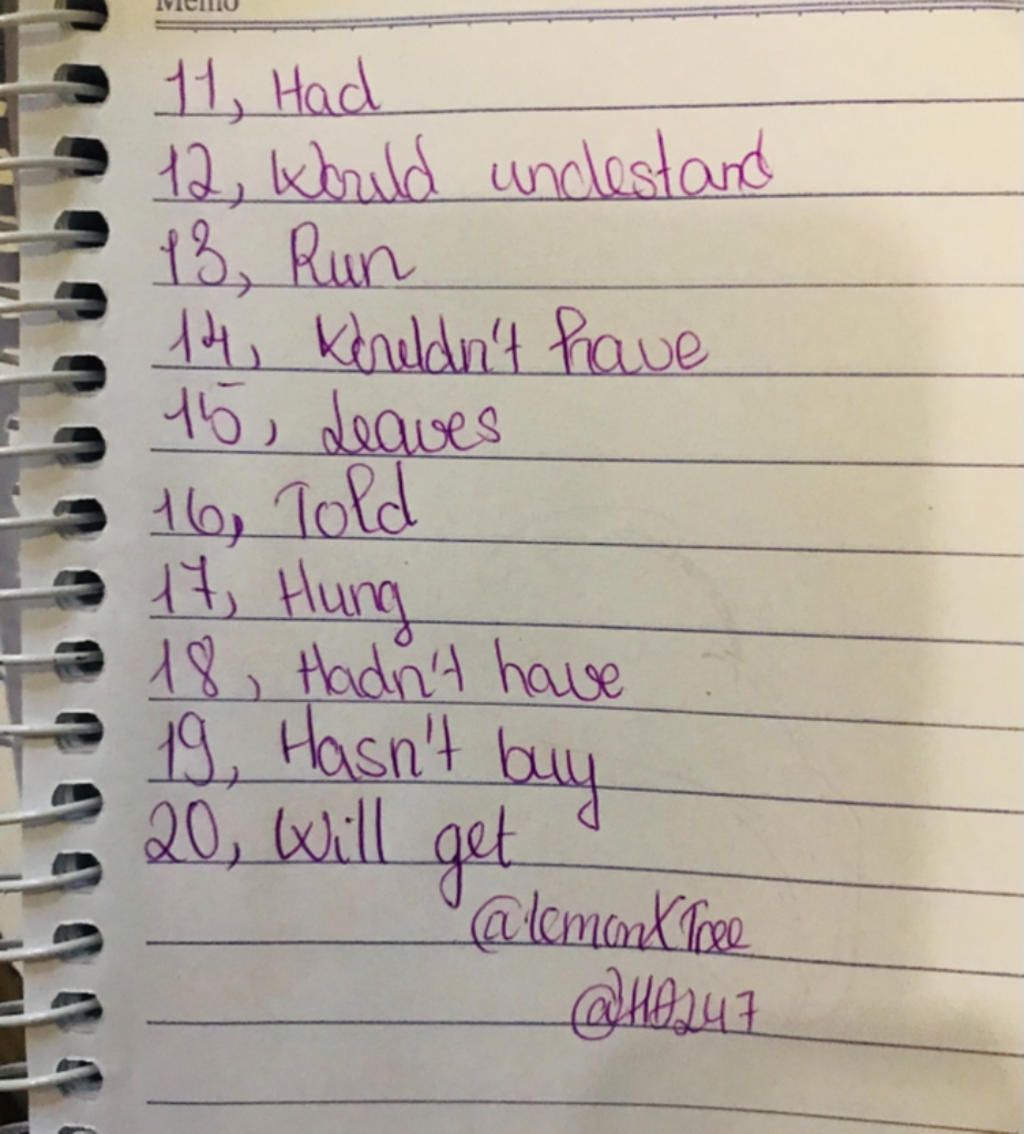 Memo
11, Had
12, Would undestand
13, Run
14, Wouldn't have
15, Leaves
16, Told
17, Hung
18, Hadn't have
19, Hasn't buy
20, Will get
@lemonXTree
@HA247